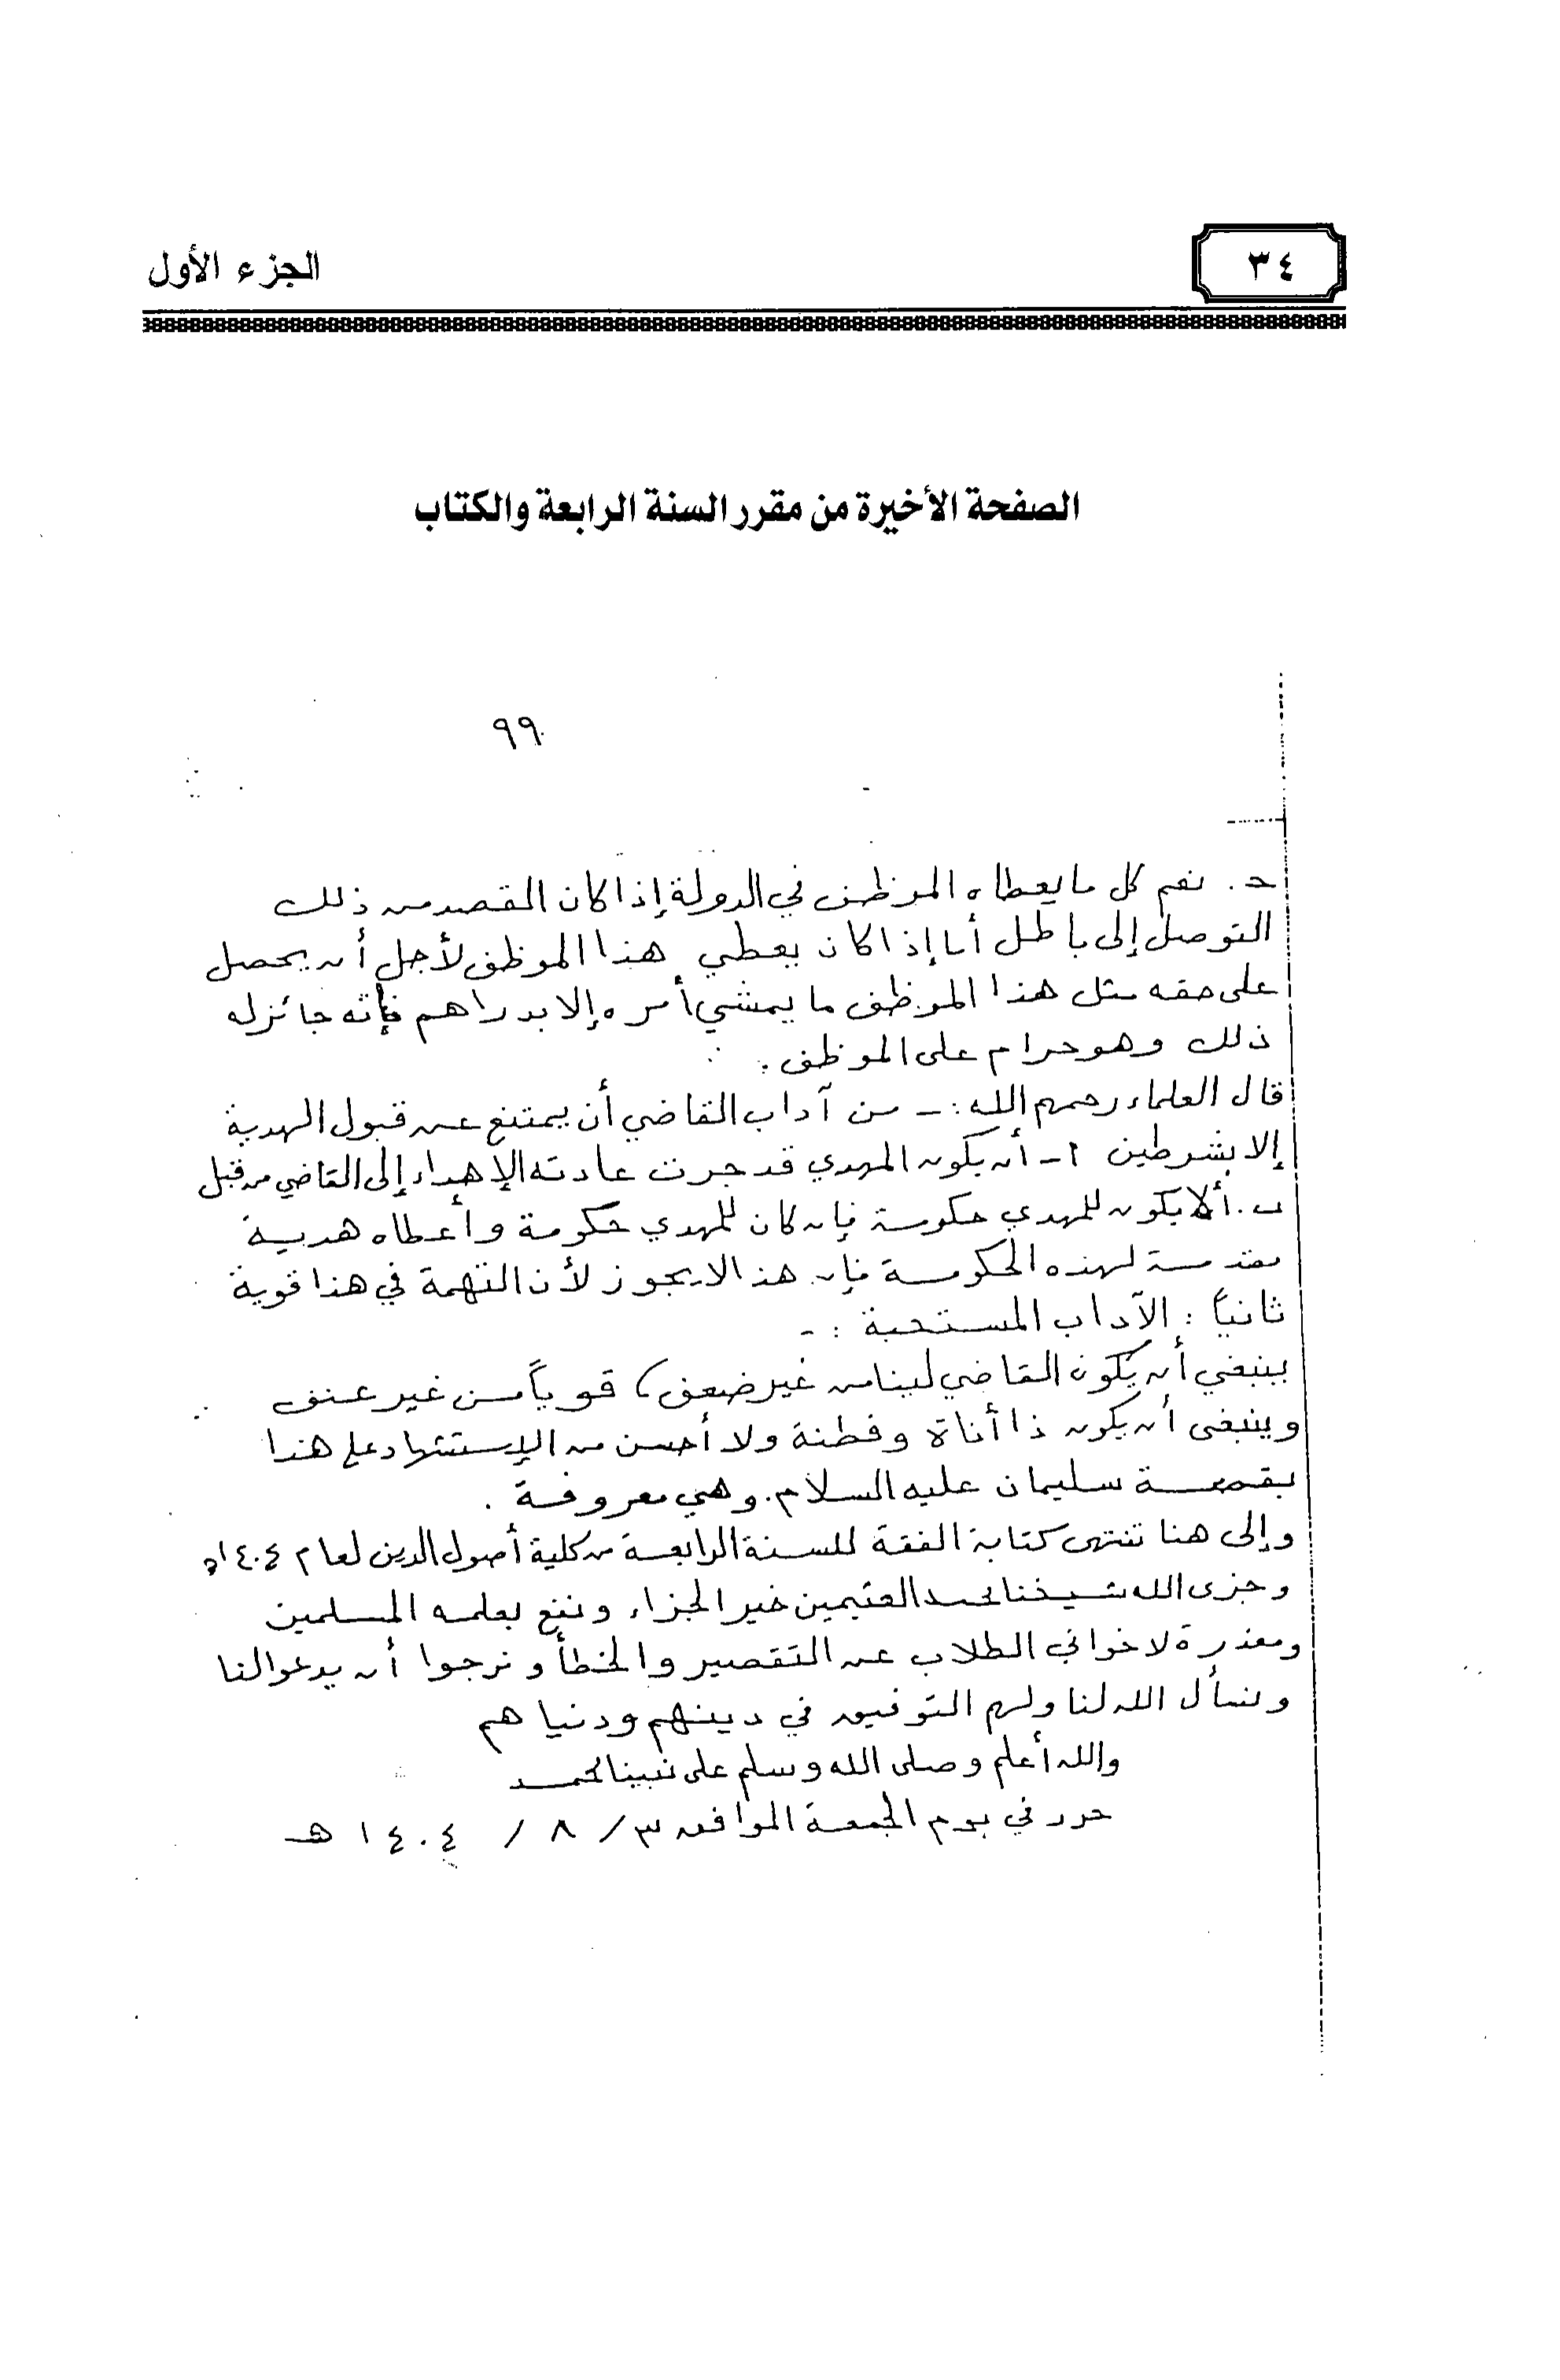 ٣٤
الجزء الأول
الصفحة الأخيرة من مقرر السنة الرابعة والكتاب
٩٩
حـ . نعم كل ما يعطاه الموظف في الدولة إذا كان القصد من ذلك
التوصل إلى باطل أما إذا كان يعطي هذا الموظف لأجل أن يحصل
على حقه مثل هذا الموظف ما يمشي أمره إلا بدراهم فإنه جائز له
ذلك وهو حرام على الموظف .
قال العلماء رحمهم الله :ـ من آداب القاضي أن يمتنع عن قبول الهدية
إلا بشرطين ا ـ أن يكون المهدي قد جرت عادته الإهداء إلى القاضي من قبل
ب . ألا يكون للمهدي حكومة فإن كان للمهدي حكومة وأعطاه هدية
مقدمة لهذه الحكومة فإن هذا لا يجوز لأن التهمة في هذا قوية
ثانياً : الآداب المستحبة : ـ
ينبغي أن يكون القاضي لينا من غير ضعف ، قوياً من غير عنف
وينبغى أن يكون ذا أناة وفطنة ولا أحسن من الإستشهاد على هذا
بقصة سليمان عليه السلام . وهي معروفة .
وإلى هنا تنتهى كتابة الفقة للسنة الرابعة من كلية أصول الدين لعام ١٤٠٤هـ
وجزى الله شيخنا محمد العثيمين خير الجزاء ونفع بعلمه المسلمين
ومعذرة لاخواني الطلاب عن التقصير والخطأ ونرجوا أن يدعوا لنا
ونسأل الله لنا ولهم التوفيق في دينهم ودنياهم
والله أعلم وصلى الله وسلم على نبينا محمد
حرر في يوم الجمعة الموافق ٣ / ٨ / ١٤٠٤ هـ